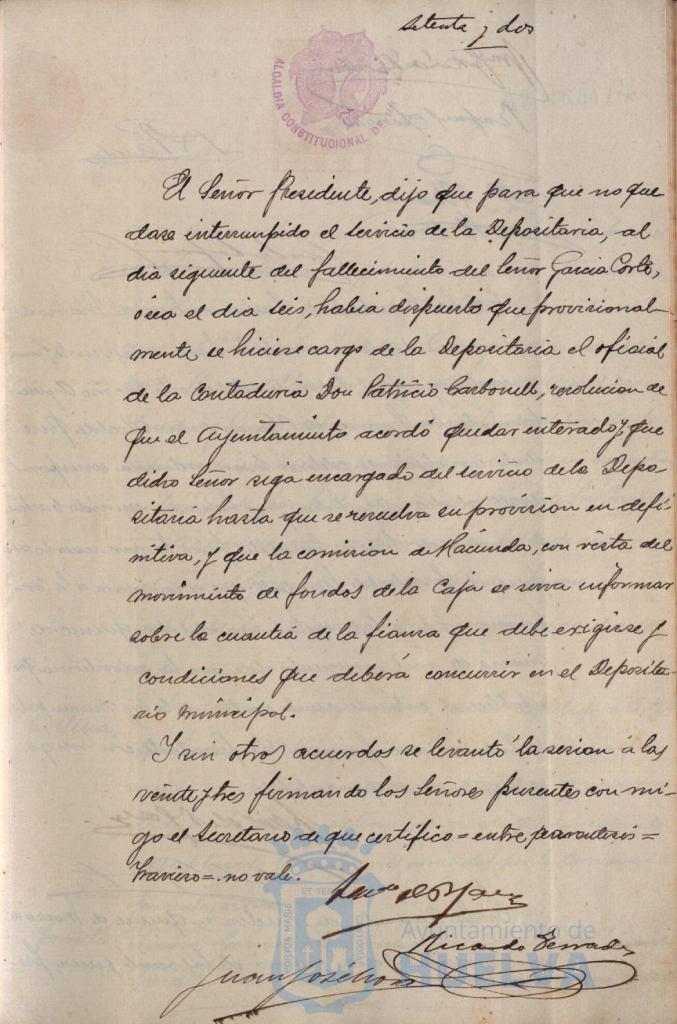 setenta y dos
ALCALDIA CONSTITUCIONAL DE
El Señor Presidente, dijo que para que no que
dase interrumpido el servicio de la Depositaria, al
dia siguiente del fallecimiento del Señor Garcia Cortés,
ósea el dia seis, habia dispuesto que provisional-
mente se hiciese cargo de la Depositaria el oficial
de la Contaduria Don Patricio Carbonell, resolucion de
que el Ayuntamiento acordó quedar enterado y que
dicho Señor siga encargado del servicio de la Depo-
sitaria hasta que se resuelva su provision en defi-
nitiva, y que la comision de Hacienda, con vista del
movimiento de fondos de la Caja se sirva informar
sobre la cuantia de la fianza que debe exigirse y
condiciones que deberá concurrir en el Deposita-
rio Municipal.
Y sin otros acuerdos se levantó la sesion á las
veinte y tres firmando los Señores presentes con mi-
go el Secretario de que certifico = entre parentesis =
= no vale.
Ricardo Terrades
Juan José
Ayuntamiento de
HUELVA
PORTUS MARIS
ET TERRAE